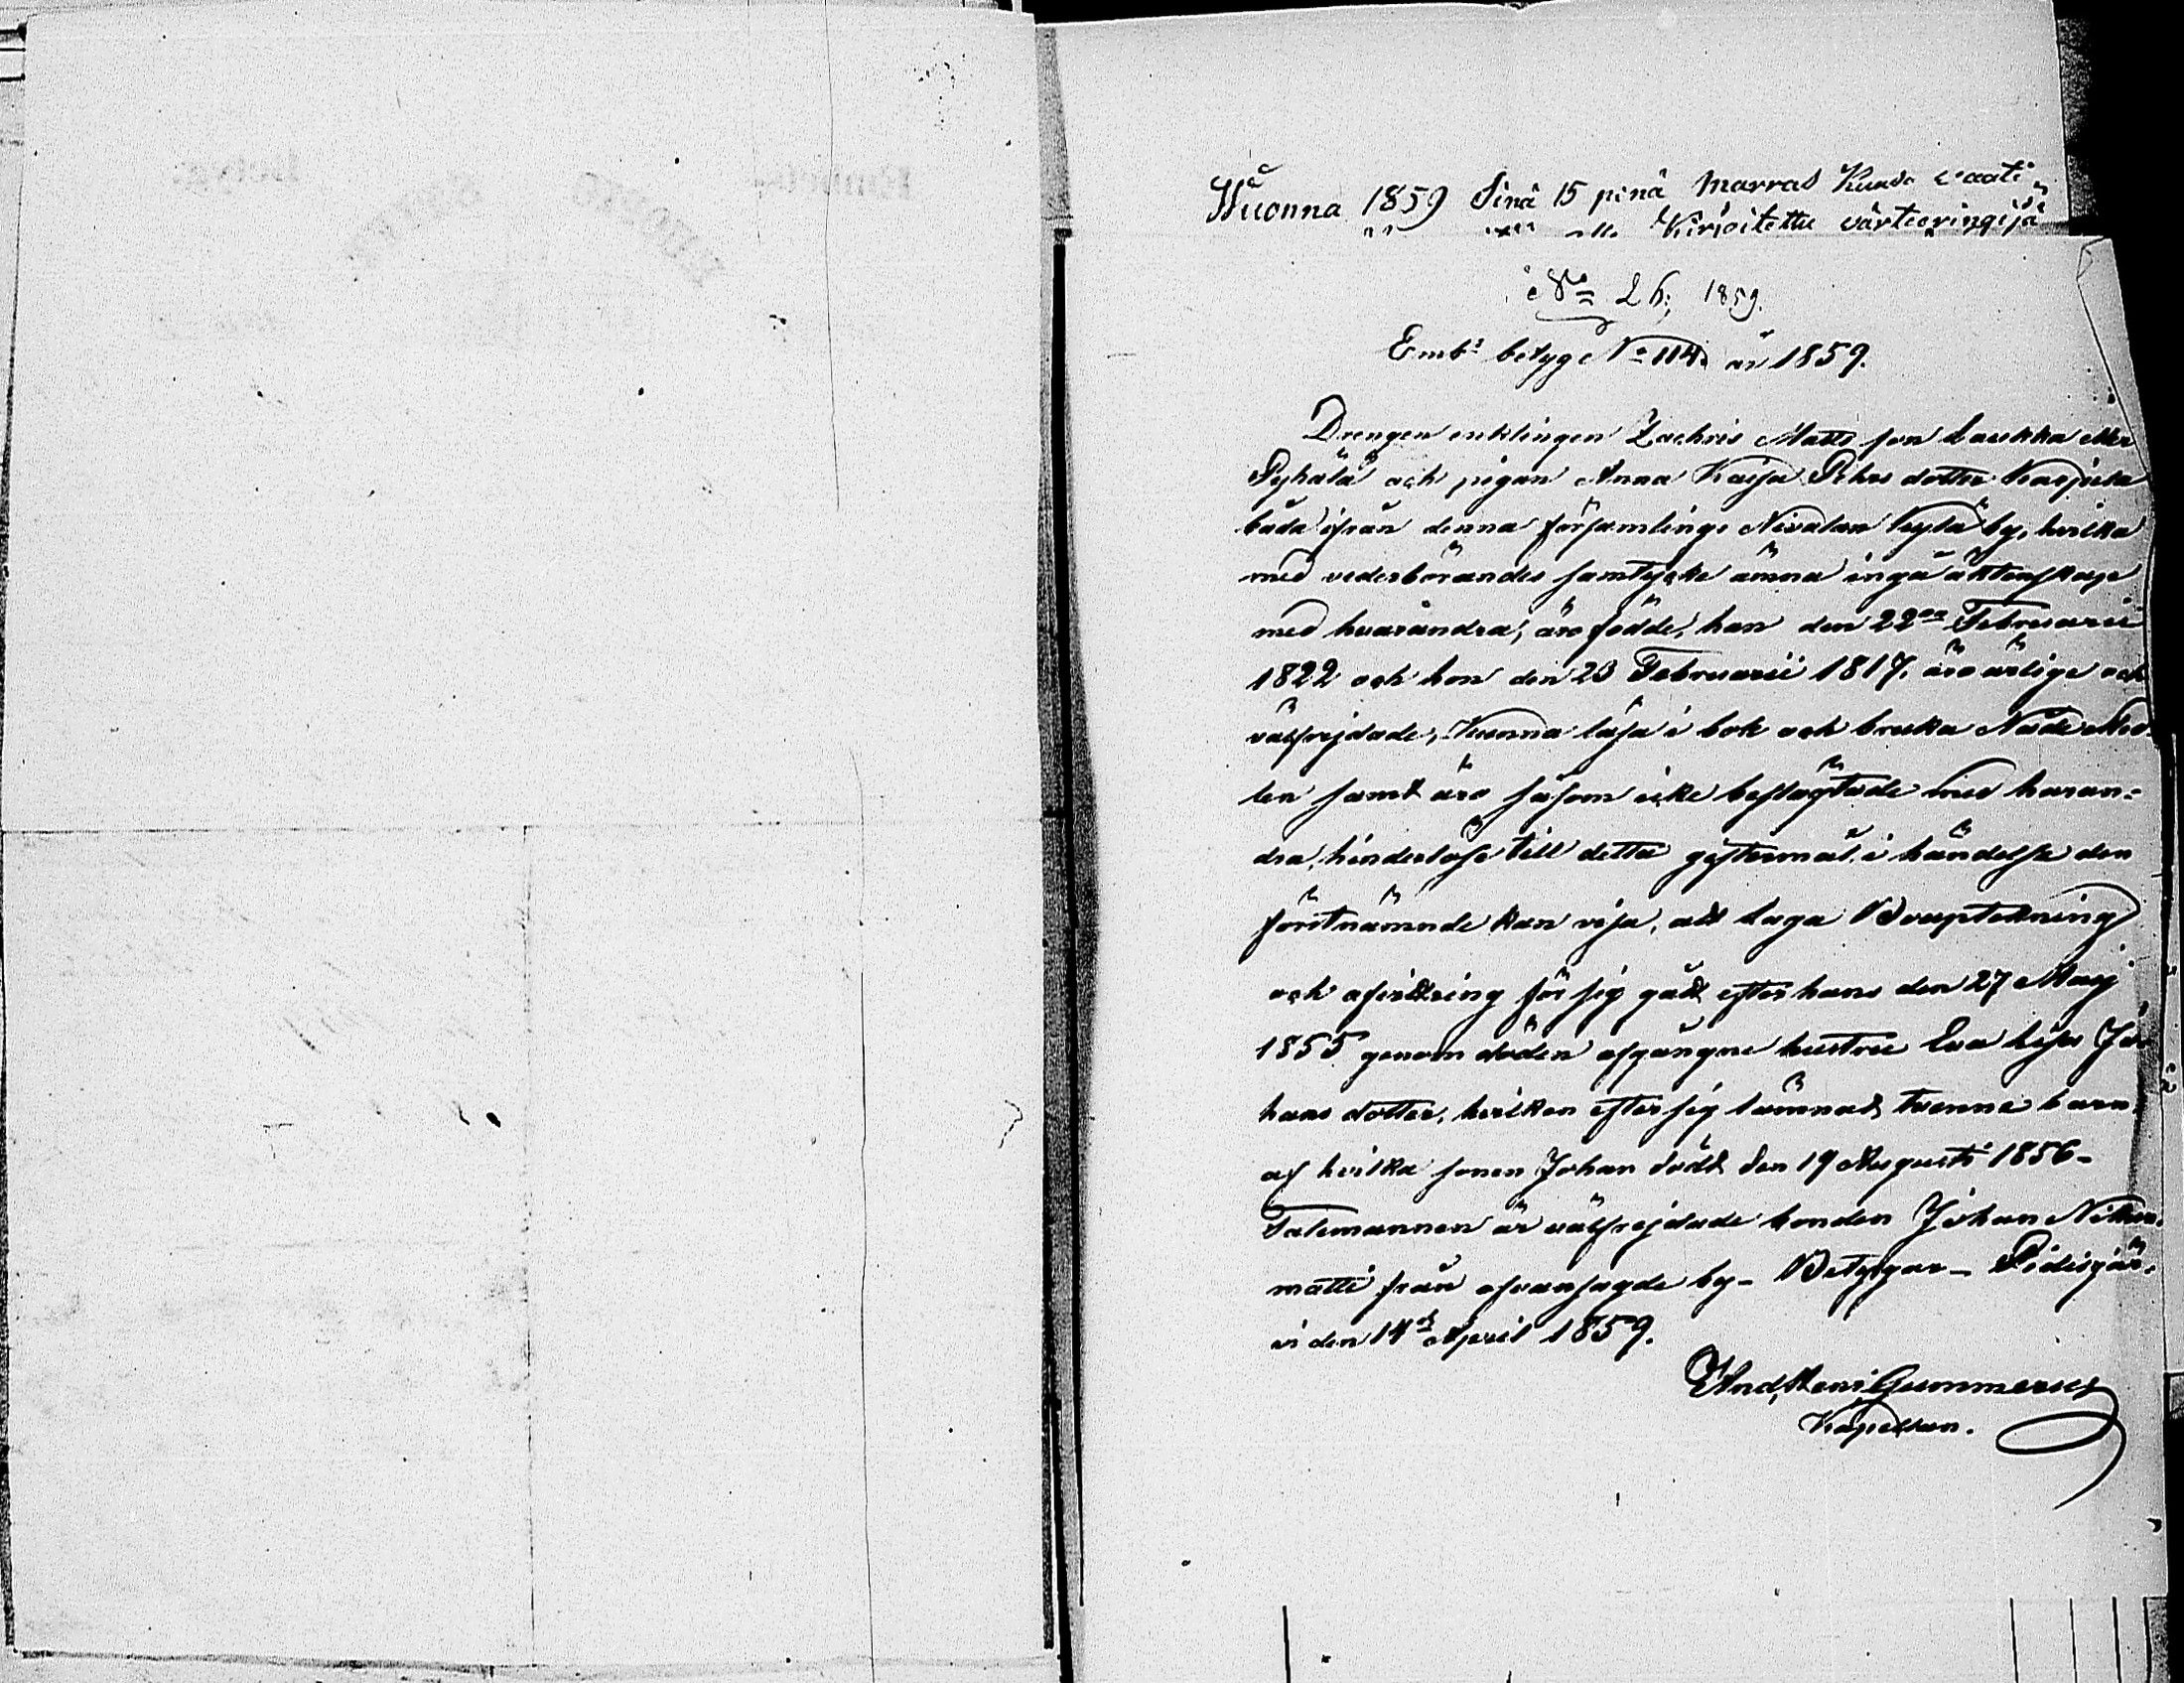 Wuonna 1859 Sinä 15 penä Marras Kuusa vaati
Kirjoitettu värteeringijä
No 26; 1859.
Embs betyg No 114. år 1859.
Drengen enklingen Zachris Matts son Laukka eller
Pyhälä och pigan Anna Kaisa Pehrs dotter
båda ifrån denna församlings Nivalan by, hvilka
med vederbörandes samtycke ämna ingå äktenskap
med hvarandra, äro födde, han den 22de Februarii
1822 och hon den 23 Februarii 1817. äro ärlige och
välfrejdade, kunna läsa i bok och bruka Nåde Med-
len samt äro såsom icke beslägtade med hvaran-
dra, hinderlöse till detta giftermål, i händelse den
förstnämnde kan visa, att laga Boupteckning
och afvittring för sig gått efter hans den 27 Maij
1855 genom döden afgångne hustru Eva Lisa Jo-
hans dotter, hvilken efter sig lämnat tvenne barn,
af hvilka sonen Johan dödt den 19 Augusti 1856-
Talemannen är välfrejdade bonden Johan
matti från ofvansagde by- Betygar- Pidisjär-
vi den 14de April 1859.
Gummerus
Kapellan.